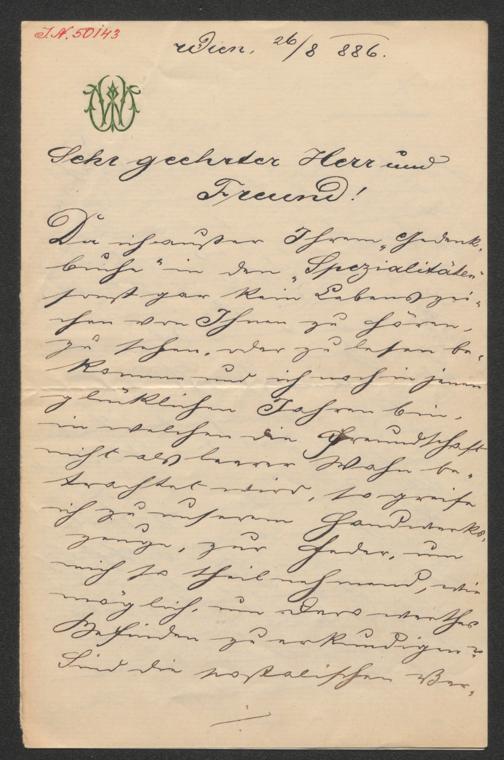 J.N. 50143
Wien, 26/8 886.
W
Sehr geehrter Herr und
Freund!
Da ich außer Ihrem „Gedenk-
buche" in den „Spezialitäten"
sonst gar kein Lebenszei-
chen von Ihnen zu hören,
zu sehen, oder zu lesen be-
komme und ich noch in jenen
glücklichen Jahren bin,
in welchen die Freundschaft
nicht als leerer Wahn be-
trachtet wird, so greife
ich zu unserem Handwerks-
zeuge, zur Feder, um
mich so theilnehmend, wie
möglich, um Ihr werthes
Befinden zu erkundigen.
Sind die postalischen Ver-